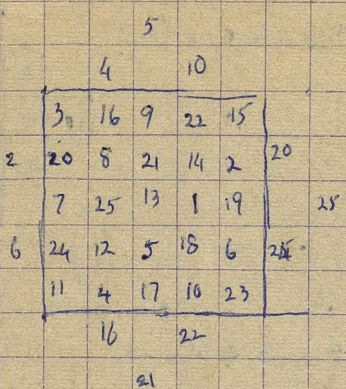 5
4 10
3 16 9 22 15
2 20 8 21 14 2 20
7 25 13 1 19 25
6 24 12 5 18 6
11 4 17 10 23
16 22
21